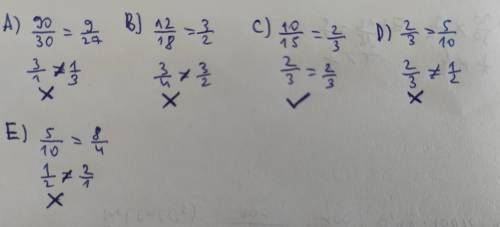 A) 90/30 = 9/27
3/1 ≠ 1/3
×
B) 12/18 = 3/2
3/4 ≠ 3/2
×
C) 10/15 = 2/3
2/3 = 2/3
✓
D) 2/3 = 5/10
2/3 ≠ 1/2
×
E) 5/10 = 8/4
1/2 ≠ 2/1
×